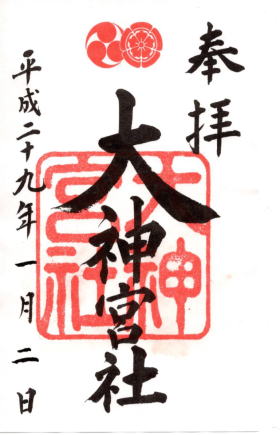 奉拝
大神宮社
大神宮社
平成二十九年一月二日